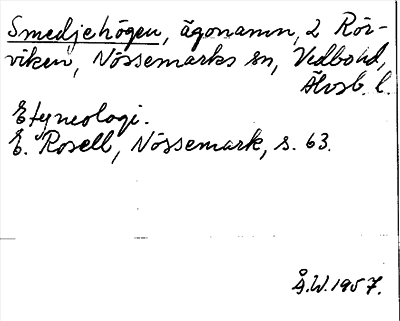 Smedjehögen, ägonamn, 2 Rör-
viken, Nössemarks sn, Vedbo hd,
Älvsb. l.
Etymologi.
E. Rosell, Nössemark, s. 63.
Å.W. 1957.